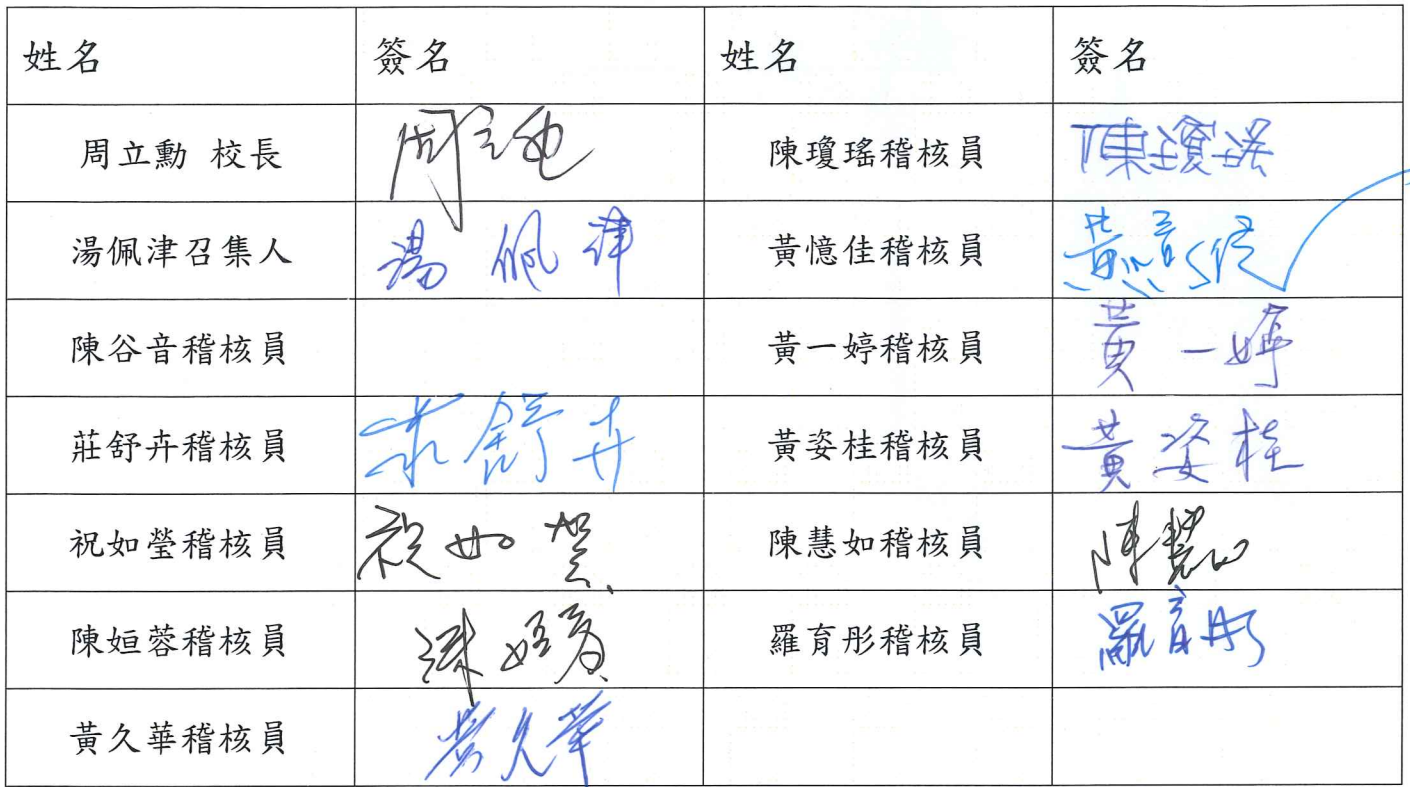 姓名 簽名 姓名 簽名
周立勳 校長 周立勳 陳瓊瑤稽核員 陳瓊瑤
湯佩津召集人 湯佩津 黃憶佳稽核員 黃憶佳
陳谷音稽核員 黃一婷稽核員 黃一婷
莊舒卉稽核員 莊舒卉 黃姿桂稽核員 黃姿桂
祝如瑩稽核員 祝如瑩 陳慧如稽核員 陳慧如
陳姮蓉稽核員 陳姮蓉 羅育彤稽核員 羅育彤
黃久華稽核員 黃久華